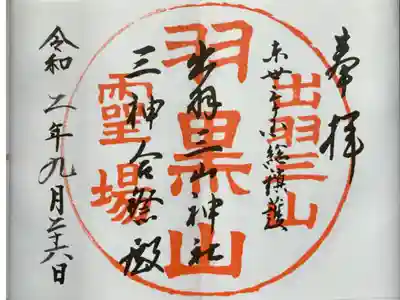 奉拝
出羽三山
総鎮護
羽黒山
出羽三山神社
三神合祭殿
靈場
令和二年九月二十六日